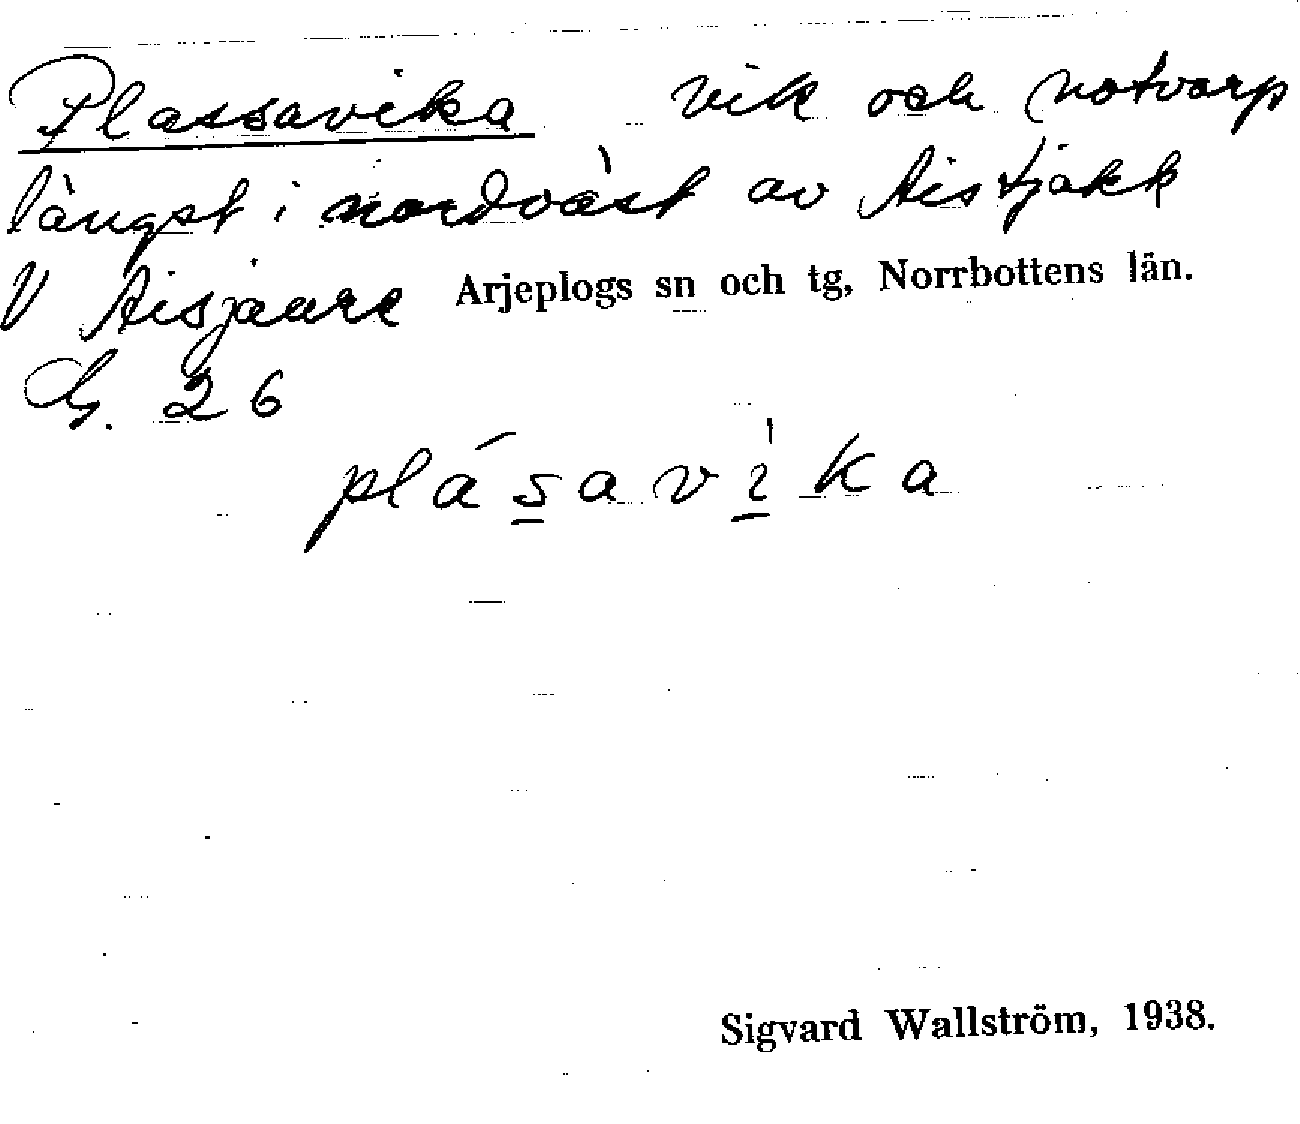 Plassavika vik och notvarp
längst i nordväst av Aistjakk
V Aisjaure Arjeplogs sn och tg, Norrbottens län.
G. 26
plása̱vi̱ka
Sigvard Wallström, 1938.